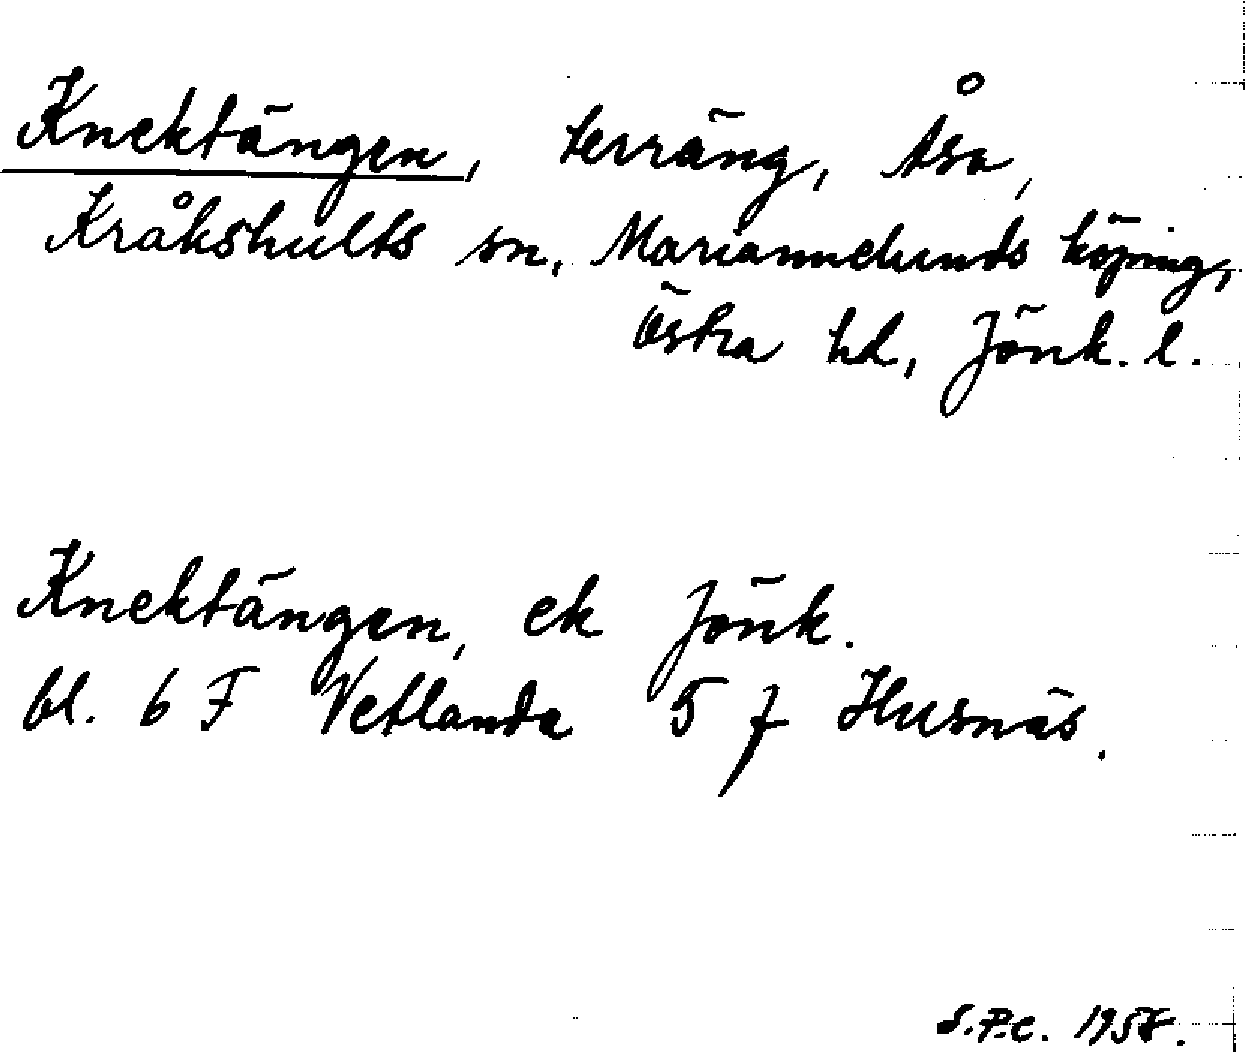 Knektängen, terräng, Åsa,
Kråkshults sn, Mariannelunds köping,
Östra hd, Jönk. l.
Knektängen, ek Jönk.
bl. 6 F Vetlanda 5 f Husnäs.
S.P.C. 1958.